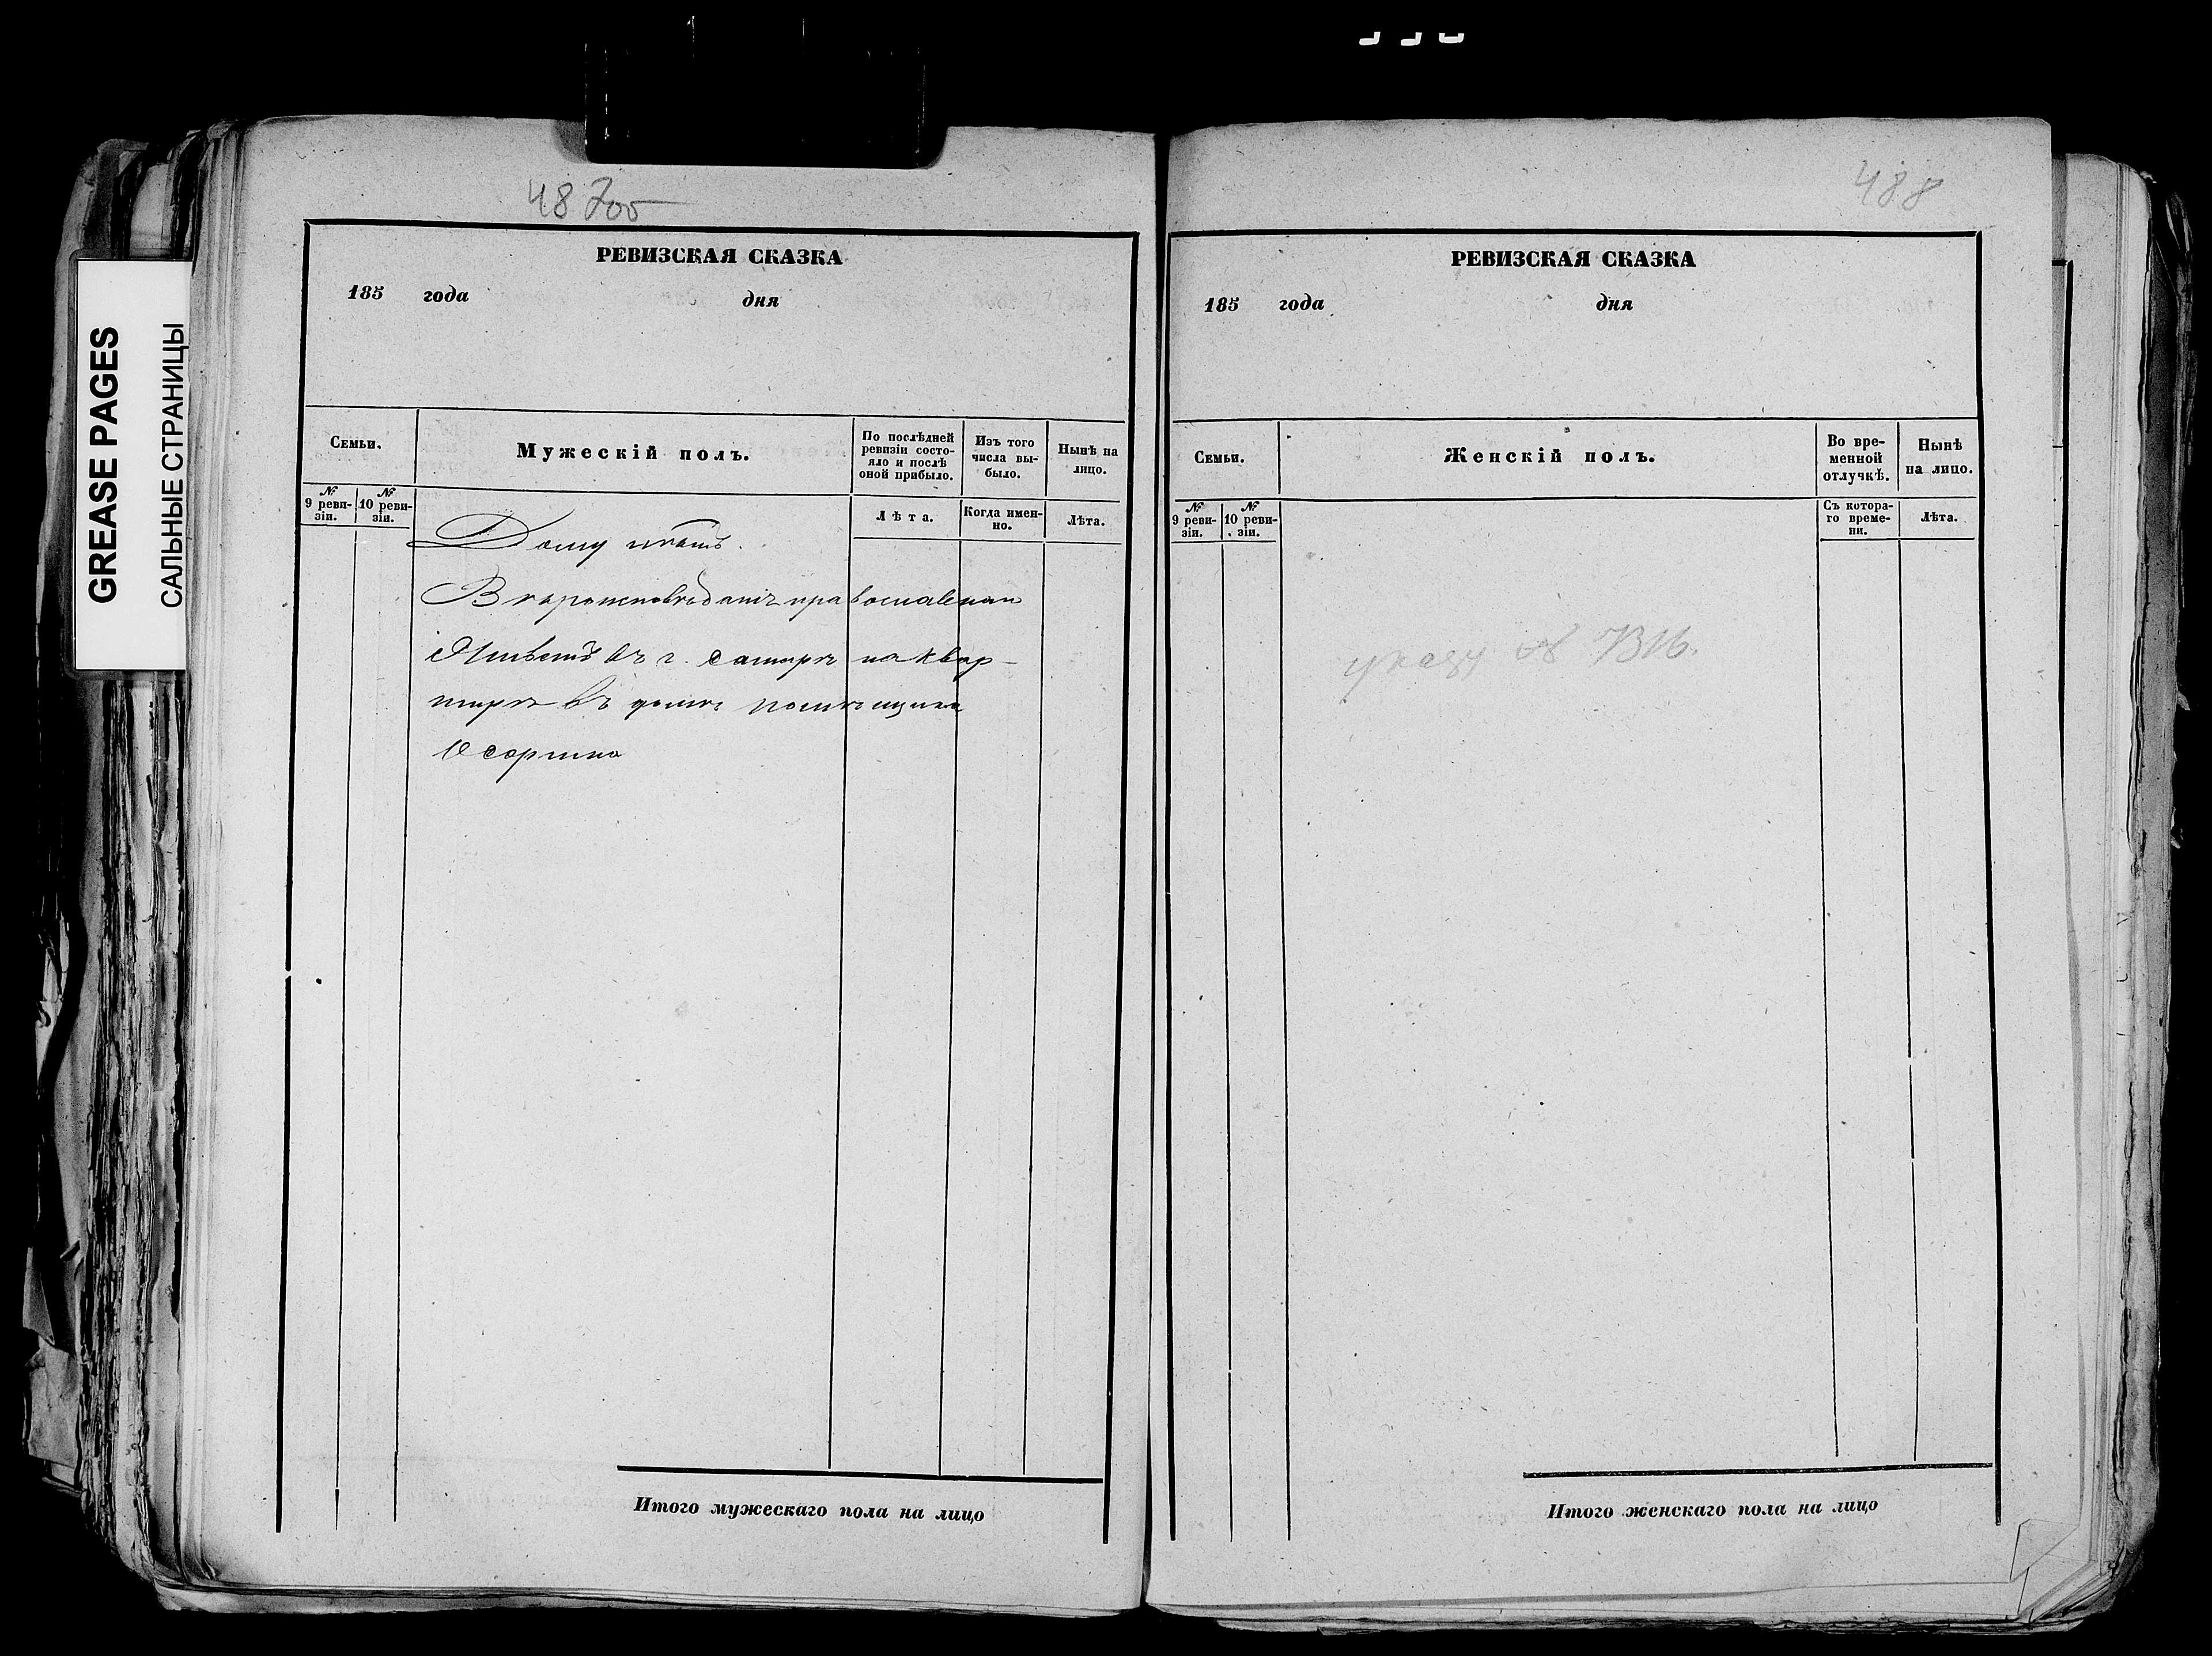 GREASE PAGES
САЛЬНЫЕ СТРАНИЦЫ
487об
РЕВИЗСКАЯ СКАЗКА
185 года дня
Семьи.
Мужескій полъ.
По послѣдней ревизіи состояло и послѣ оной прибыло.
Изъ того числа выбыло.
Нынѣ на лицо.
№ 9 ревизіи.
№ 10 ревизіи.
Лѣта.
Когда именно.
Лѣта.
Дому
Вѣроисповѣданія православнаго
Живетъ въ г. Самарѣ на квар-
тирѣ въ домѣ помѣщика
Осоргина
488
РЕВИЗСКАЯ СКАЗКА
185 года дня
Семьи.
Женскій полъ.
Во временной отлучкѣ.
Нынѣ на лицо.
№ 9 ревизіи.
№ 10 ревизіи.
Съ котораго времени.
Лѣта.
Итого мужескаго пола на лицо
Итого женскаго пола на лицо